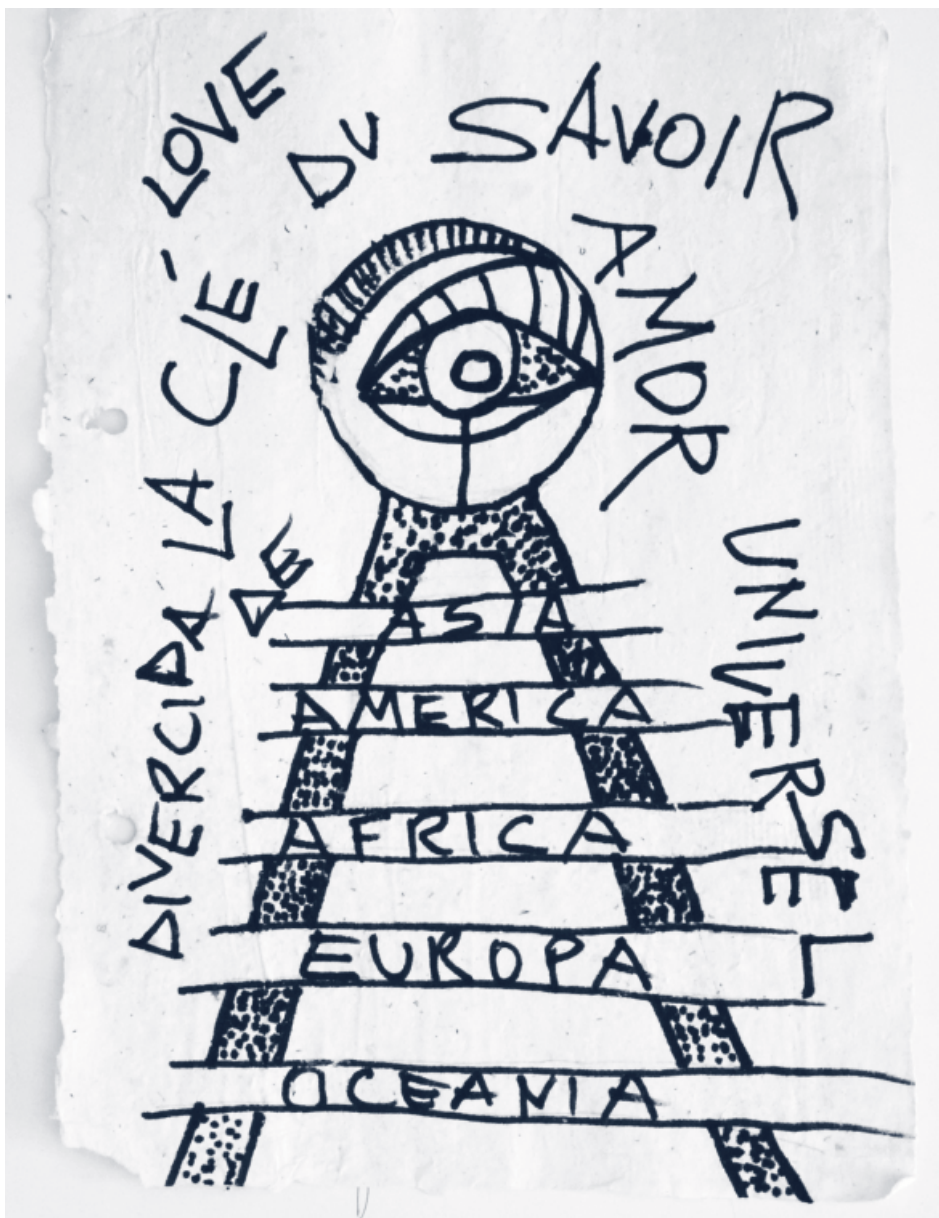 LOVE
DIVERCIDA
DE
LA CLÉ DU SAVOIR
AMOR
UNIVERSEL
ASIA
AMERICA
AFRICA
EUROPA
OCEANIA